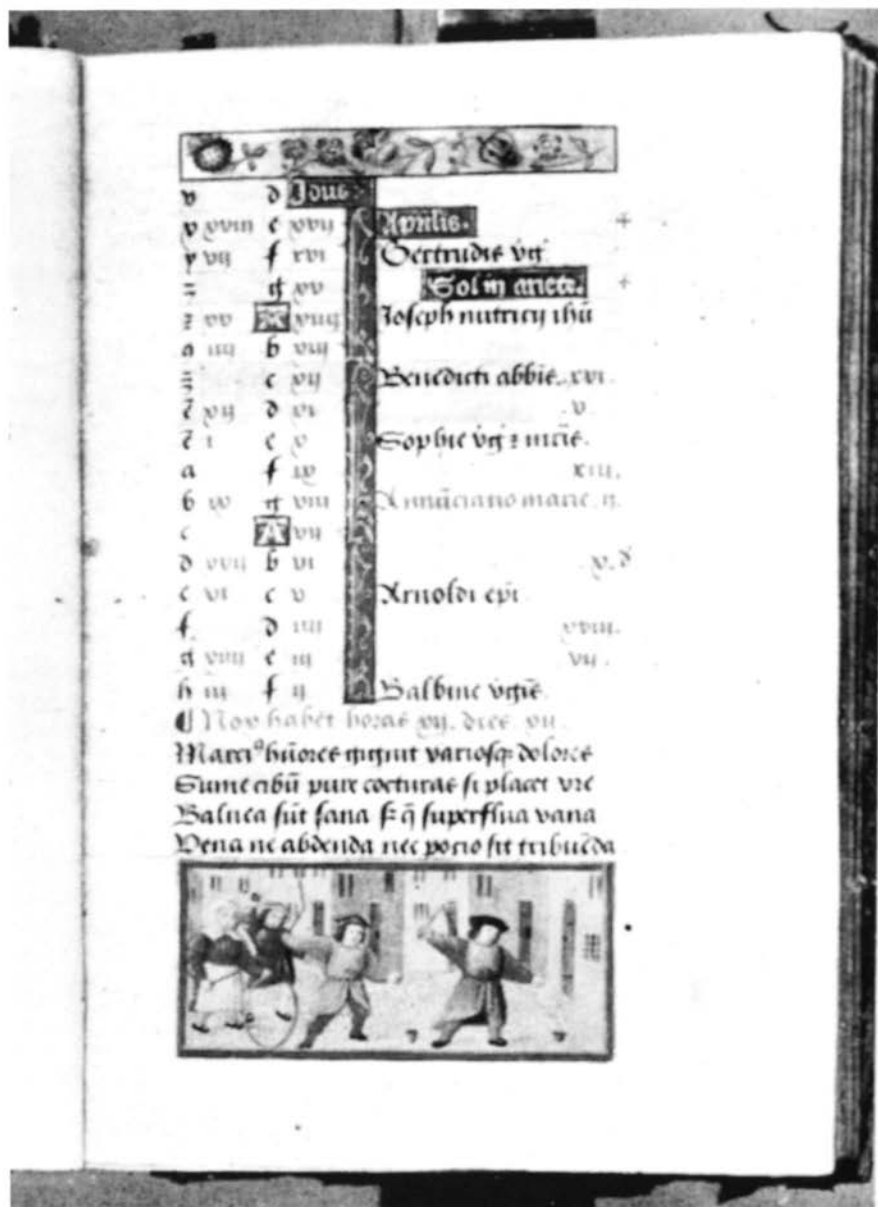 v d Idus
v xviii e xvii Aprilis.
y vii f xvi Gertrudis v̄ḡ
g xv Sol in ariete.
z xv A xiiii Ioseph nutricij ihū
a iiii b xiii
c xii Benedicti abbis. xvi.
xii d xi v.
i e x Sophie v̄ḡ ⁊ m̄r̄is.
a f ix xiii.
b ix g viii Annūciatio marie. ii.
c A vii
d xvii b vi x. d
e vi c v Arnoldi epī
f d iiii xviii.
g xiiii e iii vii.
h iii f ii Balbine v̄gīs.
Nox habet horas xii. dies. xii.
Marci⁹ hūores gignit variosq; dolores
Sume cibū pure cocturas si placet vre
Balnea sūt sana s; q̄ superflua vana
Vena nē abdenda nec pocio sit tribuēda